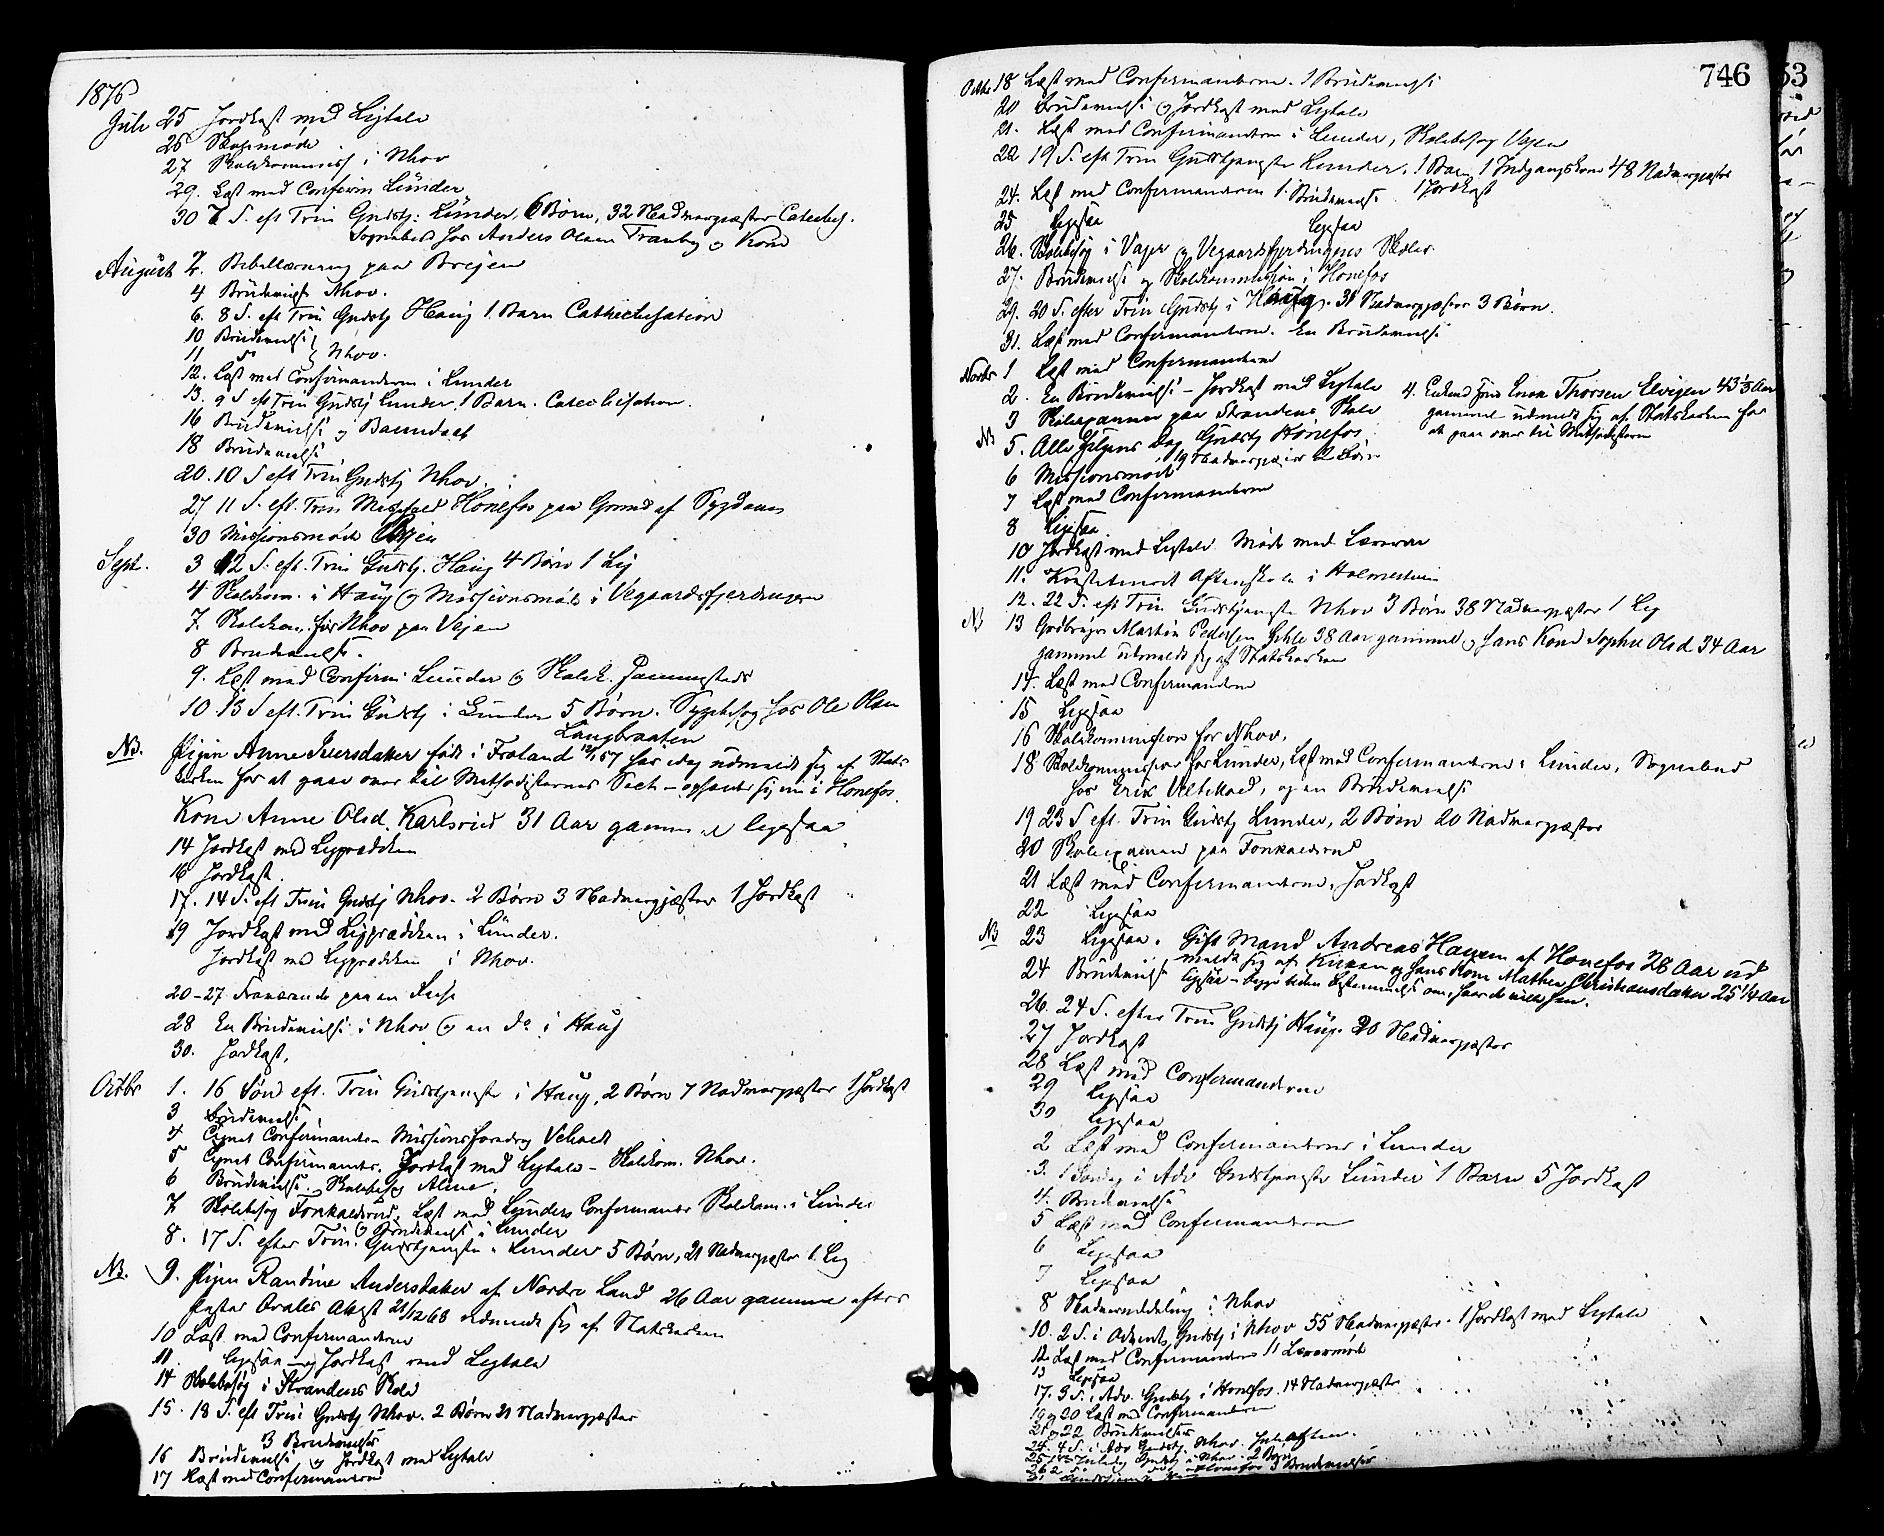 1876
Juli 25 Jordkast med Ligtale
26 Skolemøde
27 Skolekommiss i Nhov
29. Læst med Confirm Lunder
30 7 S. eft Trin Gudstj: Lunder, 6 Børn, 32 Nadvergjæster Catechis.
Sognebud hos Anders Olsen Tranby og Kone
August 2. Bibellæsning paa Vejen
4 Brudevielse Nhov.
6. 8 S. eft Trin Gudstj Haug 1 Barn Cathechisation
10 Brudevielse
11 do Nhov.
12. Læst med Confirmanderne i Lunder
13. 9 S eft Trin Gudstj Lunder 1 Barn. Catechisation.
16 Brudevielse og Barnedaab
18 Brudevielse
20. 10 S eft Trin Gudstj Nhov.
27 11 S. eft. Trin Messefald Hønefos paa Grund af Sygdom
30 Missionsmøde Vejen
Sept. 3 12 S. eft. Trin Gudstj. Haug 4 Børn 1 Lig
4 Skolekom. i Haug og Missionsmøde i Vegaardsfjerdingen
7. Skolekom. for Nhov paa Vejen
8 Brudevielse.
9. Læst med Confirm i Lunder og Skolek.
10 13 S eft. Trin Gudstj i Lunder 5 Børn. Sygebesøg hos Ole Olsen
Langbraaten
NB. Pigen Anne Iversdatter født i Froland 57 har idag udmeldt sig af Stats
kirken for at gaae over til Methodisternes Sect – opholdt sig nu i Hønefos.
Kone Anne Olsd. Karlsrud 31 Aar gammel ligesaa
14 Jordkast med Ligprædiken
16 Jordkast.
17. 14 S. eft Trin Gudstj Nhov. 2 Børn 3 Nadvergjæster 1 Jordkast
19 Jordkast med Ligprædiken i Lunder.
Jordkast med Ligprædiken i Nhov.
20–27 Fraværende paa en Rejse
28 En Brudevielse i Nhov og en do i Haug
30. Jordkast.
Octbr 1. 16 Sønd eft. Trin Gudstjeneste i Haug, 2 Børn 7 Nadvergjæster 1 Jordkast
3 Brudevielse
4 Confirmander – Missionsforedrag
5 Confirmander. Jordkast med Ligtale – Skolekom. Nhov.
6 Brudevielse. Skolebesøg
7. Skolebesøg Læst med Lunders Confirmander Skolekom. i Lunder
og Brudevielse i Lunder
8. 17 S. efter Trin. Gudstjeneste i Lunder 5 Børn, 21 Nadvergjæster 1 Lig
NB. 9. Pigen Randine Andersdatter af Nordre Land 26 Aar gammel efter
Pastor Attest 21/12 68 udmeldt sig af Statskirken
10 Læst med Confirmanderne
11. ligesaa og Jordkast med Ligtale
14 Skolebesøg i Strandens Skole
15. 18 S. eft Trin Gudstj Nhov. 2 Børn 21 Nadvergjæster
3 Brudevielser
16 Brudevielse og Jordkast med Ligtale
17 Læst med Confirmanderne
746
53
Octbr 18 Læst med Confirmanterne. 1 Brudevielse
20 Brudevielse og Jordkast med Ligtale
21. Læst med Confirmanderne i Lunder, Skolebesøg Vejen
22 19 S. eft Trin Gudstjeneste Lunder, 1 Barn, 1 Indgangskone 48 Nadvergjæster
24. Læst med Confirmanderne 1. Brudevielse 1 Jordkast
25 Ligesaa ligesaa
26. Skolebesøg i Vager og Vegaardsfjerdingens Skoler
27. Brudevielse og Skolekommission i Hønefos
29. 20 S. efter Trin Gudstj i Haug. 31 Nadvergjæster 3 Børn.
31. Læst med Confirmanderne. En Brudevielse
Novbr 1 Læst med Confirmanderne
2. En Brudevielse – Jordkast med Ligtale
3 Skoleexamen paa Strandens Skole
4. Enkemd Thorsen Elvigen 43 1/3 Aar
gammel udmeldt sig af Statskirken for
at gaae over til Methodisterne
NB 5. Alle Helgens Dag Gudstj Hønefos
19 Nadvergjæster 2 Børn
6 Missionsmøde
7 Læst med Confirmanderne
8 Ligesaa
10 Jordkast med Ligtale Møde med Lærerne
11. Aftenskole i Holmestuen
12. 22 S. eft Trin Gudstjeneste Nhov 3 Børn 38 Nadvergjæster 1 Lig
NB 13 Gaardbruger Martin Pedersen 38 Aar gammel og hans Kone Sophie Olsd 34 Aar
gammel udmeldt sig af Statskirken
14. Læst med Confirmanderne
15 Ligesaa
16 Skolekommission for Nhov.
18 Skolekommission for Lunder, Læst med Confirmanterne i Lunder, Sognebud
hos Erik og en Brudevielse
19 23 S eft. Trin Gudstj Lunder, 2 Børn 20 Nadvergjæster
20 Skoleexamen paa
21 Læst med Confirmanterne, Jordkast
22 Ligesaa
NB 23 Ligesaa. Gift Mand Andreas Hansen af Hønefos 28 Aar ud
meldt sig af Kirken og hans Kone Mathea Christiansdatter 25 1/4 Aar
24 Brudevielse ligesaa – begge uden Bestemmelse om, hvor de ville hen.
26. 24 S. efter Trin Gudstj Haug. 20 Nadvergjæster
27 Jordkast
28 Læst med Confirmanderne
29 Ligesaa
30 Ligesaa
2 Læst med Confirmanterne i Lunder
3. 1 Søndag i Adv Gudstjeneste Lunder 1 Barn 5 Jordkast
4. Brudevielse
5 Læst med Confirmanderne
6 Ligesaa
7 Ligesaa
8 Nadveruddeling i Nhov
10. 2 S. i Advent, Gudstj i Nhov 55 Nadvergjæster. 1 Jordkast med Ligtale
12 Læst med Confirmanderne 11 Lærermøde
13 Ligesaa
17. 3 S. i Adv. Gudstj i Hønefos. 14 Nadvergjæster
19 og 20 Læst med Confirmanderne
21 og 22 Brudevielser
24. 4 S. i Adv Gudstj. Nhov. Juleaften.
25 1ste Juledag Gudstj i Nhov. 2 Børn
26 2 Hønefos 3 Brudevielser